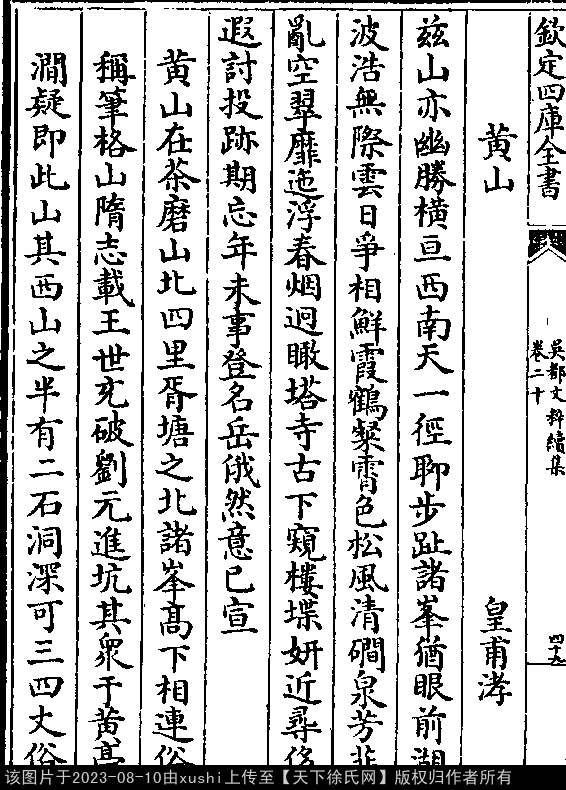 欽定四庫全書
吳都文粹續集
卷二十
四十九
黃山
皇甫涍
兹山亦幽勝橫亘西南天一徑聊步趾諸峯猶眼前湖
波浩無際雲日爭相鮮霞鶴粲霄色松風清磵泉芳菲
亂空翠靡迤浮春烟迥瞰塔寺古下窺樓堞妍近尋
遐討投跡期忘年未事登名岳俄然意已宣
黃山在茶磨山北四里胥塘之北諸峯髙下相連俗
稱筆格山隋志載王世充破劉元進坑其衆于黃亭
澗疑即此山其西山之半有二石洞深可三四丈俗
该图片于2023-08-10由xushi上传至【天下徐氏网】版权归作者所有